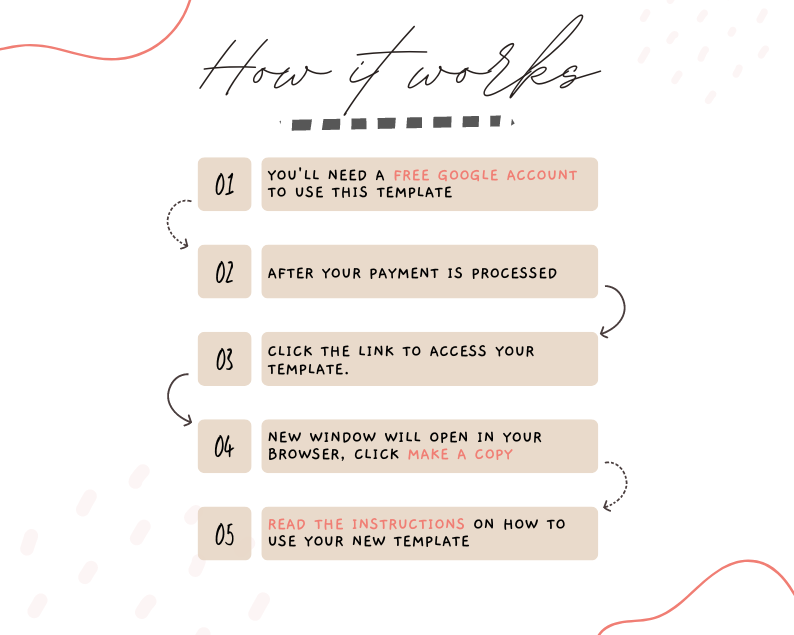 How it works
01
YOU'LL NEED A FREE GOOGLE ACCOUNT
TO USE THIS TEMPLATE
02
AFTER YOUR PAYMENT IS PROCESSED
03
CLICK THE LINK TO ACCESS YOUR
TEMPLATE.
04
NEW WINDOW WILL OPEN IN YOUR
BROWSER, CLICK MAKE A COPY
05
READ THE INSTRUCTIONS ON HOW TO
USE YOUR NEW TEMPLATE